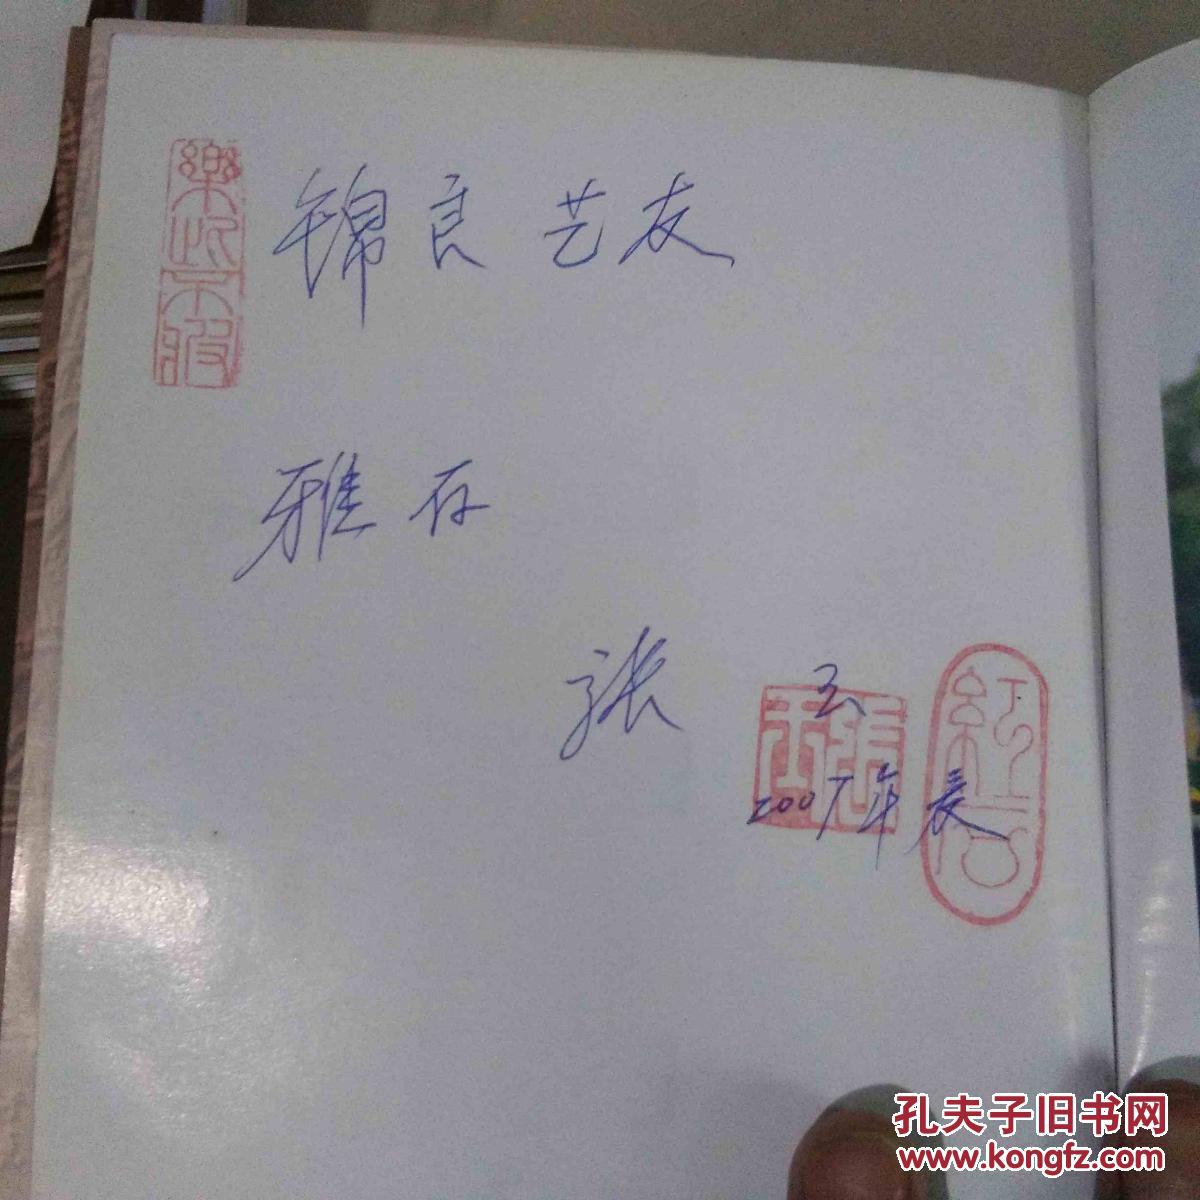 乐此不疲
锦良艺友
雅存
张玉
2007年晨
孔夫子旧书网
www.kongfz.com